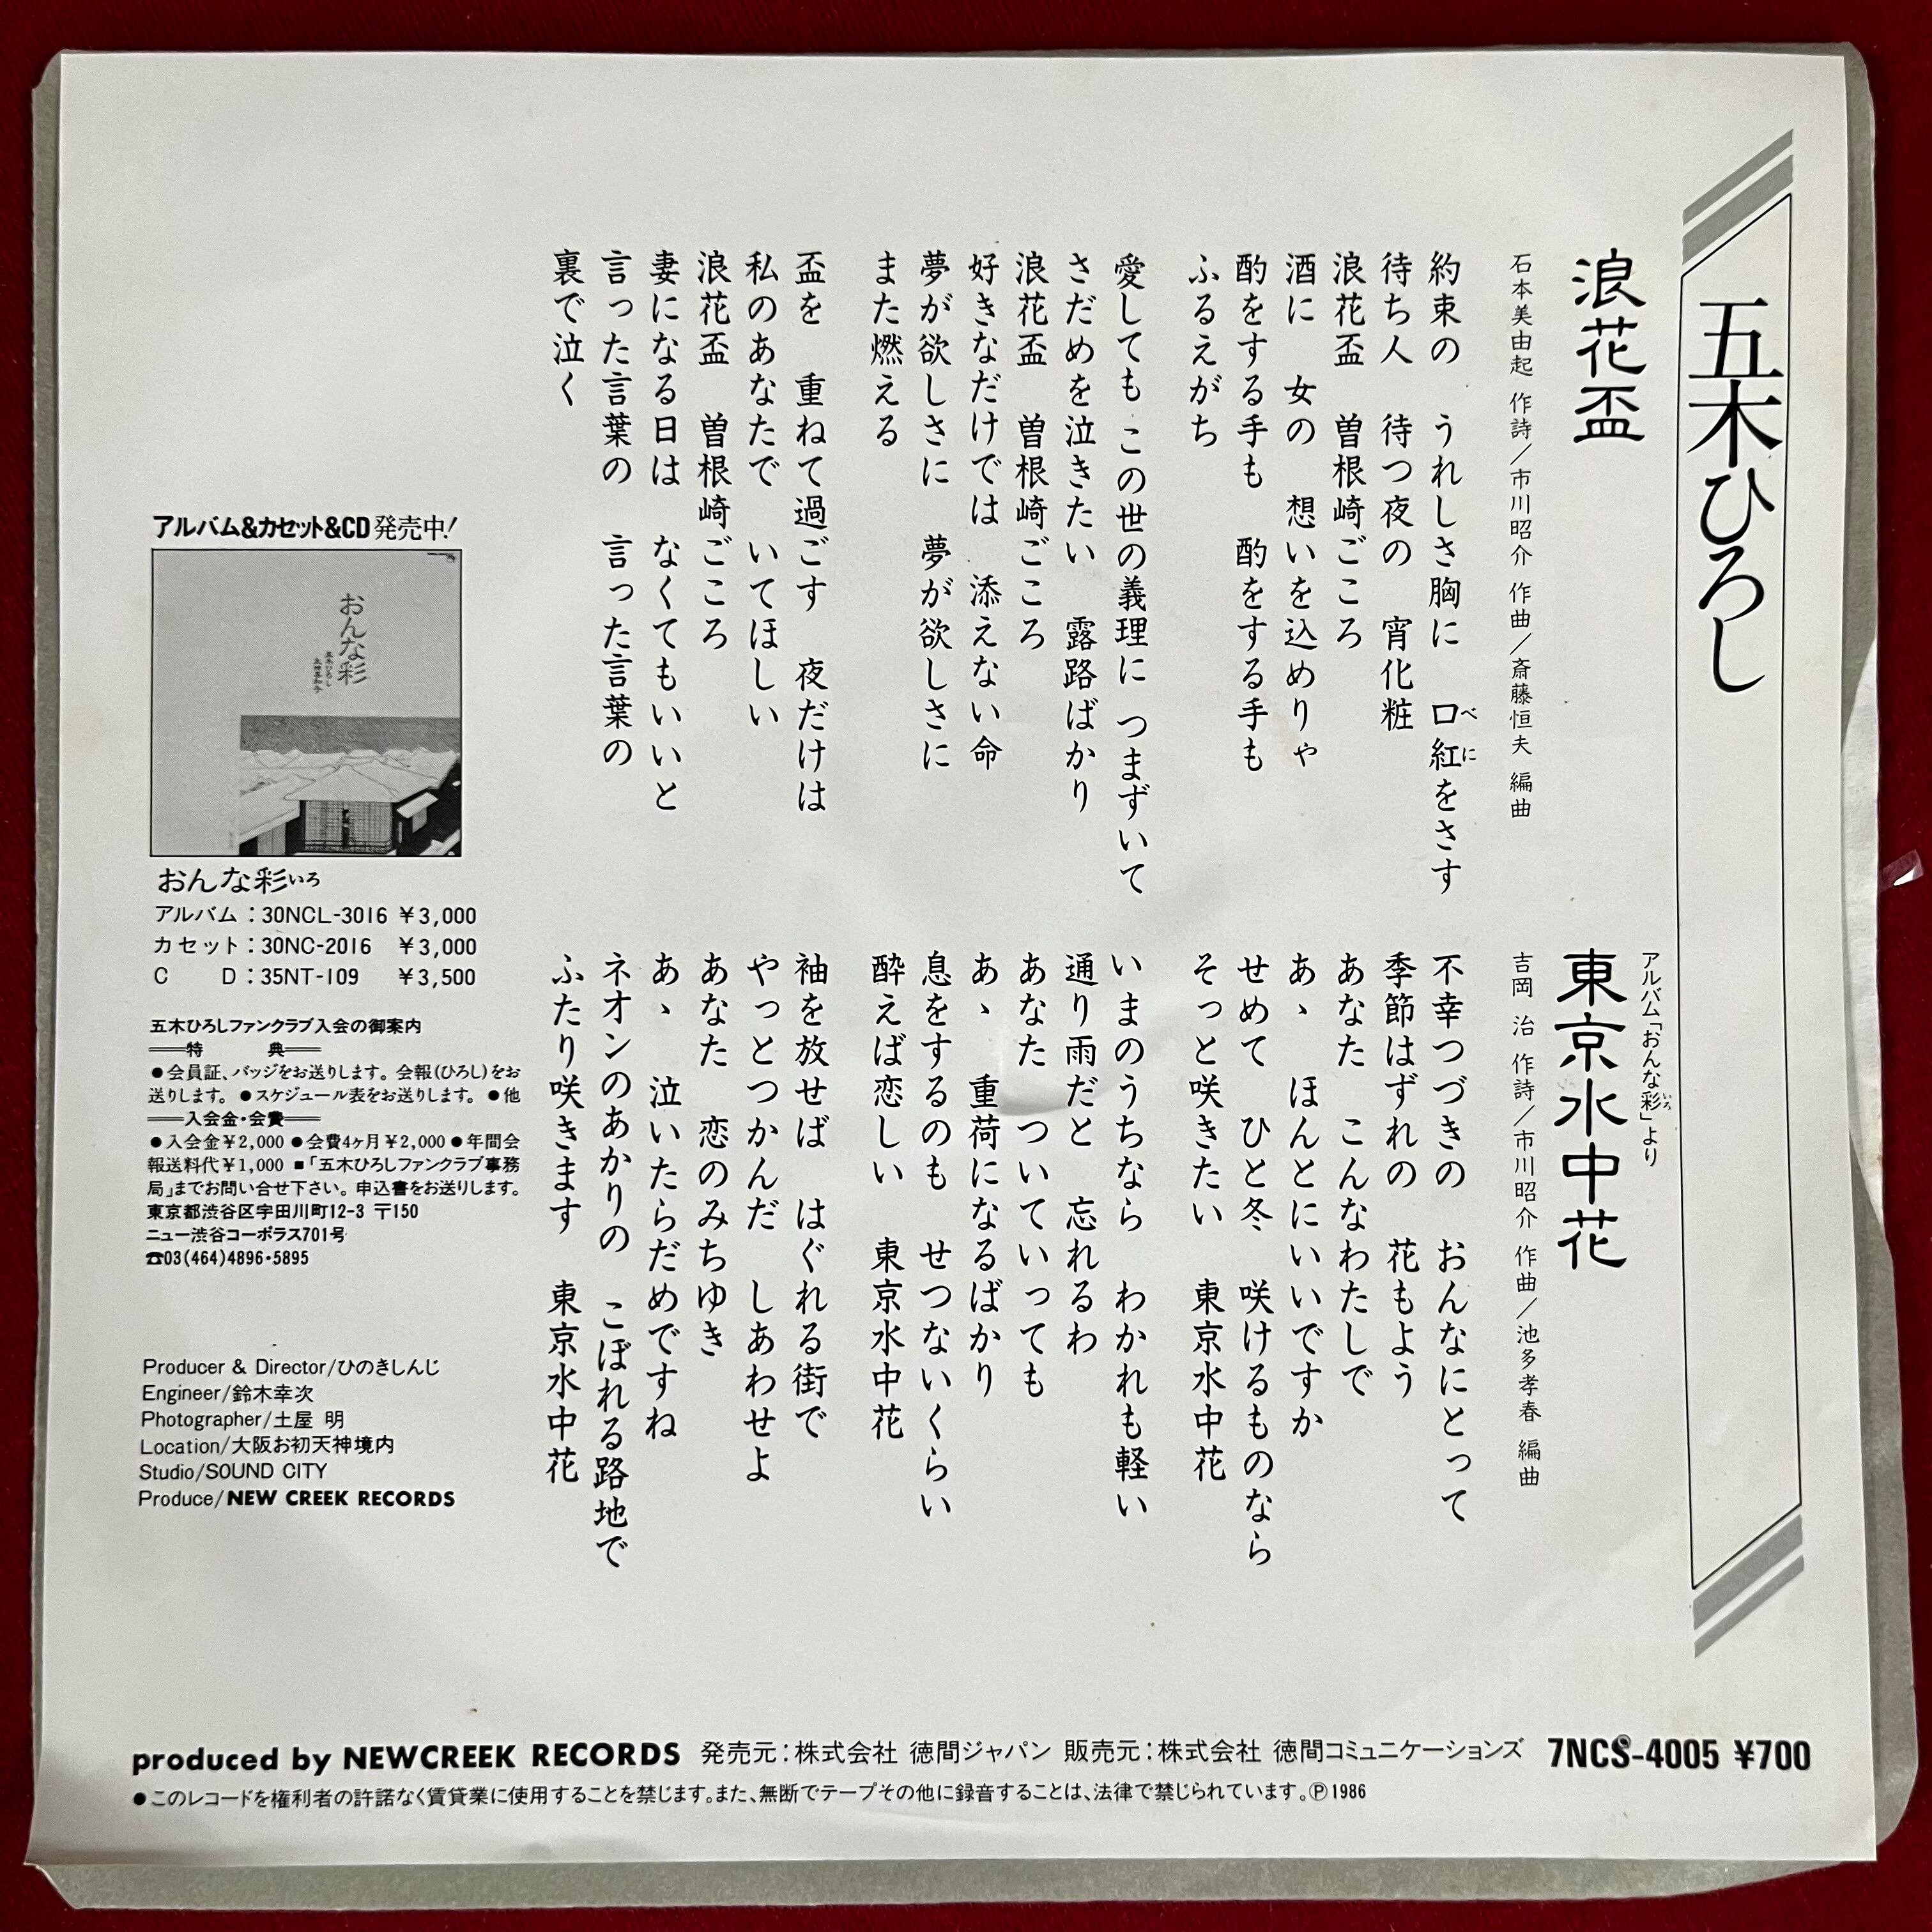 五木ひろし
浪花盃
石本美由起 作詩/市川昭介 作曲/斎藤恒夫 編曲
約束の うれしさ胸に 口紅をさす
べに
待ち人 待つ夜の 宵化粧
浪花盃 曽根崎ごころ
酒に 女の 想いを込めりゃ
酌をする手も 酌をする手も
ふるえがち
愛しても この世の義理に つまずいて
さだめを泣きたい 露路ばかり
浪花盃 曽根崎ごころ
好きなだけでは 添えない命
夢が欲しさに 夢が欲しさに
また燃える
盃を 重ねて過ごす 夜だけは
私のあなたで いてほしい
浪花盃 曽根崎ごころ
妻になる日は なくてもいいと
言った言葉の 言った言葉の
裏で泣く
アルバム「おんな彩」より
いろ
東京水中花
吉岡 治 作詩/市川昭介 作曲/池多孝春 編曲
不幸つづきの おんなにとって
季節はずれの 花もよう
あなた こんなわたしで
あゝ ほんとにいいですか
せめて ひと冬 咲けるものなら
そっと咲きたい 東京水中花
いまのうちなら わかれも軽い
通り雨だと 忘れるわ
あなた ついていっても
あゝ 重荷になるばかり
息をするのも せつないくらい
酔えば恋しい 東京水中花
袖を放せば はぐれる街で
やっとつかんだ しあわせよ
あなた 恋のみちゆき
あゝ 泣いたらだめですね
ネオンのあかりの こぼれる路地で
ふたり咲きます 東京水中花
アルバム&カセット&CD発売中!
おんな彩
五木ひろし
おんな彩いろ
アルバム:30NCL-3016 ¥3,000
カセット:30NC-2016 ¥3,000
C D:35NT-109 ¥3,500
五木ひろしファンクラブ入会の御案内
特 典
●会員証、バッジをお送りします。会報(ひろし)をお
送りします。●スケジュール表をお送りします。●他
入会金・会費
●入会金¥2,000●会費4ヶ月¥2,000●年間会
報送料代¥1,000■「五木ひろしファンクラブ事務
局」までお問い合せ下さい。申込書をお送りします。
東京都渋谷区宇田川町12-3 〒150
ニュー渋谷コーポラス701号
☎03(464)4896・5895
Producer & Director/ひのきしんじ
Engineer/鈴木幸次
Photographer/土屋 明
Location/大阪お初天神境内
Studio/SOUND CITY
Produce/NEW CREEK RECORDS
produced by NEWCREEK RECORDS 発売元:株式会社 徳間ジャパン 販売元:株式会社 徳間コミュニケーションズ 7NCS-4005 ¥700
●このレコードを権利者の許諾なく賃貸業に使用することを禁じます。また、無断でテープその他に録音することは、法律で禁じられています。Ⓟ1986